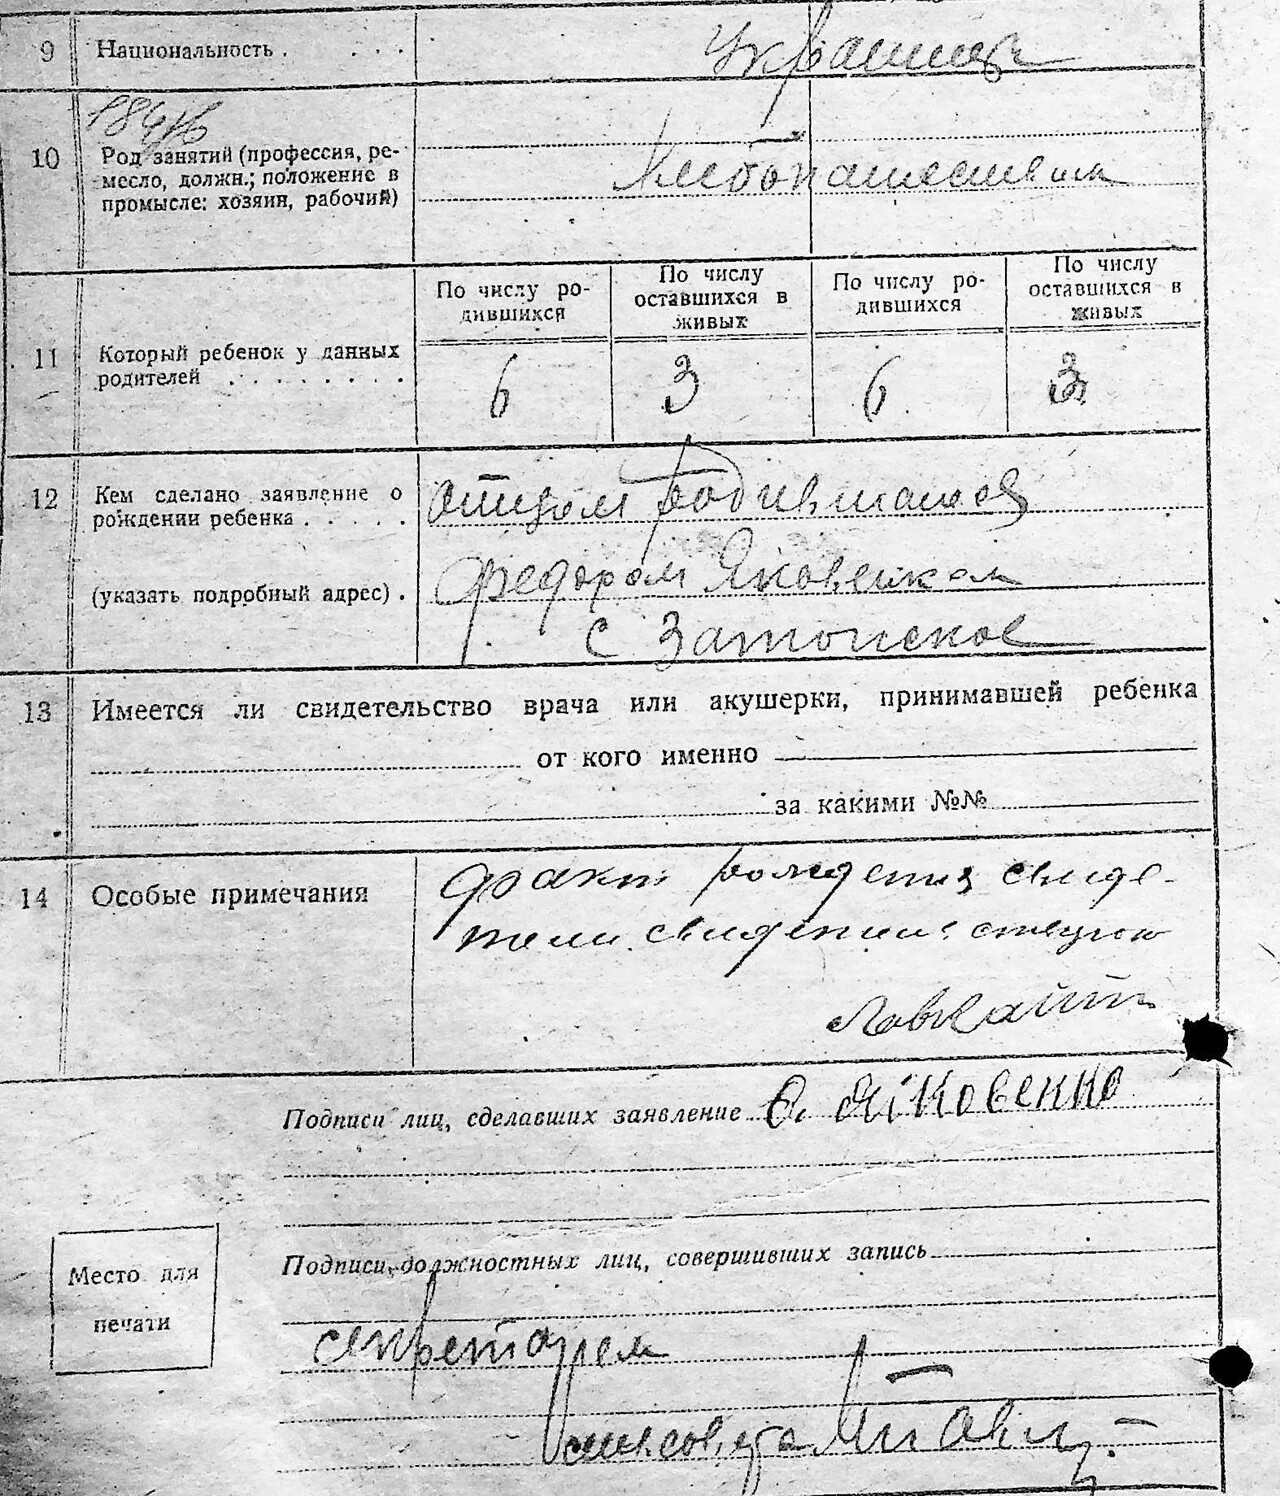 9 Национальность . . . . Украинцы
10 Род занятий (профессия, ре-
месло, должн.; положение в
промысле: хозяин, рабочий)
Хлебопашество
По числу ро-
дившихся
По числу
оставшихся в
живых
По числу ро-
дившихся
По числу
оставшихся в
живых
11 Который ребенок у данных
родителей . . . . . . . .
6 3 6 3
12 Кем сделано заявление о
рождении ребенка . . . . .
(указать подробный адрес) .
отцом родившагося
Федором Яковенком
с Затонское
13 Имеется ли свидетельство врача или акушерки, принимавшей ребенка
от кого именно
за какими №№
14 Особые примечания
факт рождения свиде-
тели
Подписи лиц, сделавших заявление Ѳ. Яковенко
Подписи должностных лиц, совершивших запись
Место для
печати
секретарем